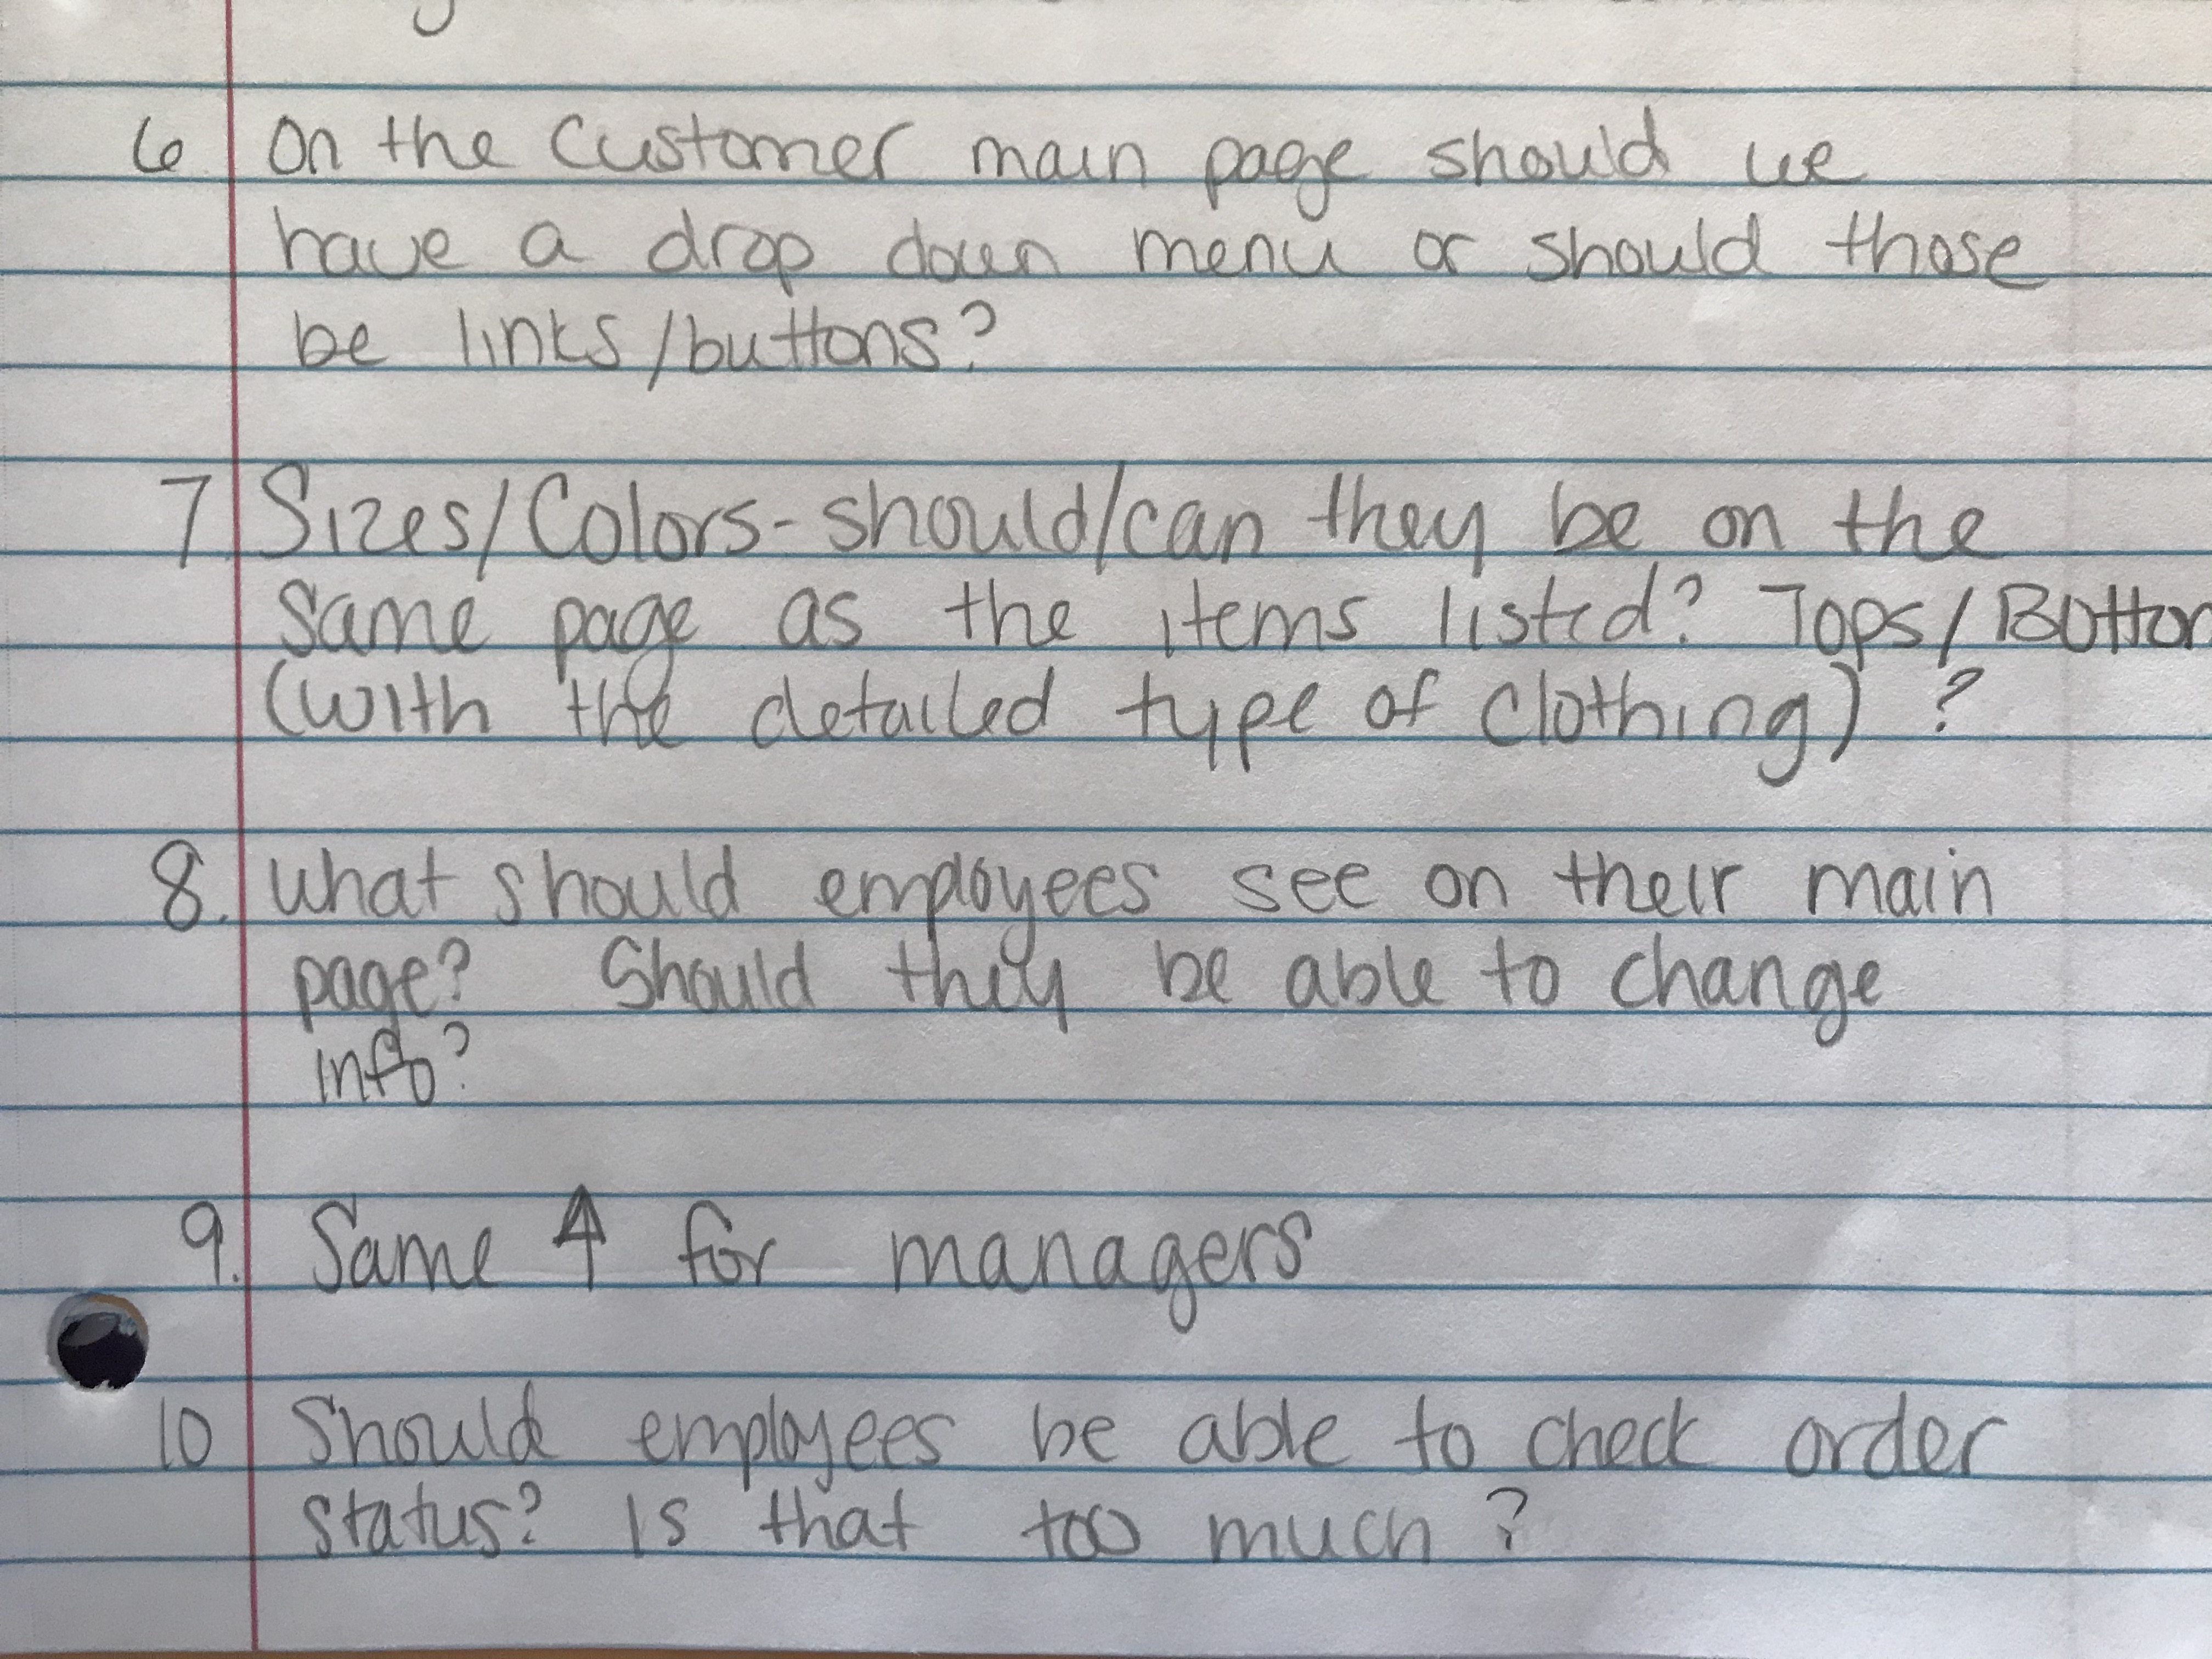 6 On the customer main page should we
have a drop down menu or should those
be links/buttons?
7 Sizes/Colors - should/can they be on the
same page as the items listed? Tops/Bottom
(with the detailed type of clothing)?
8. What should employees see on their main
page? Should they be able to change
info?
9. Same ↑ for managers
10 Should employees be able to check order
status? Is that too much?